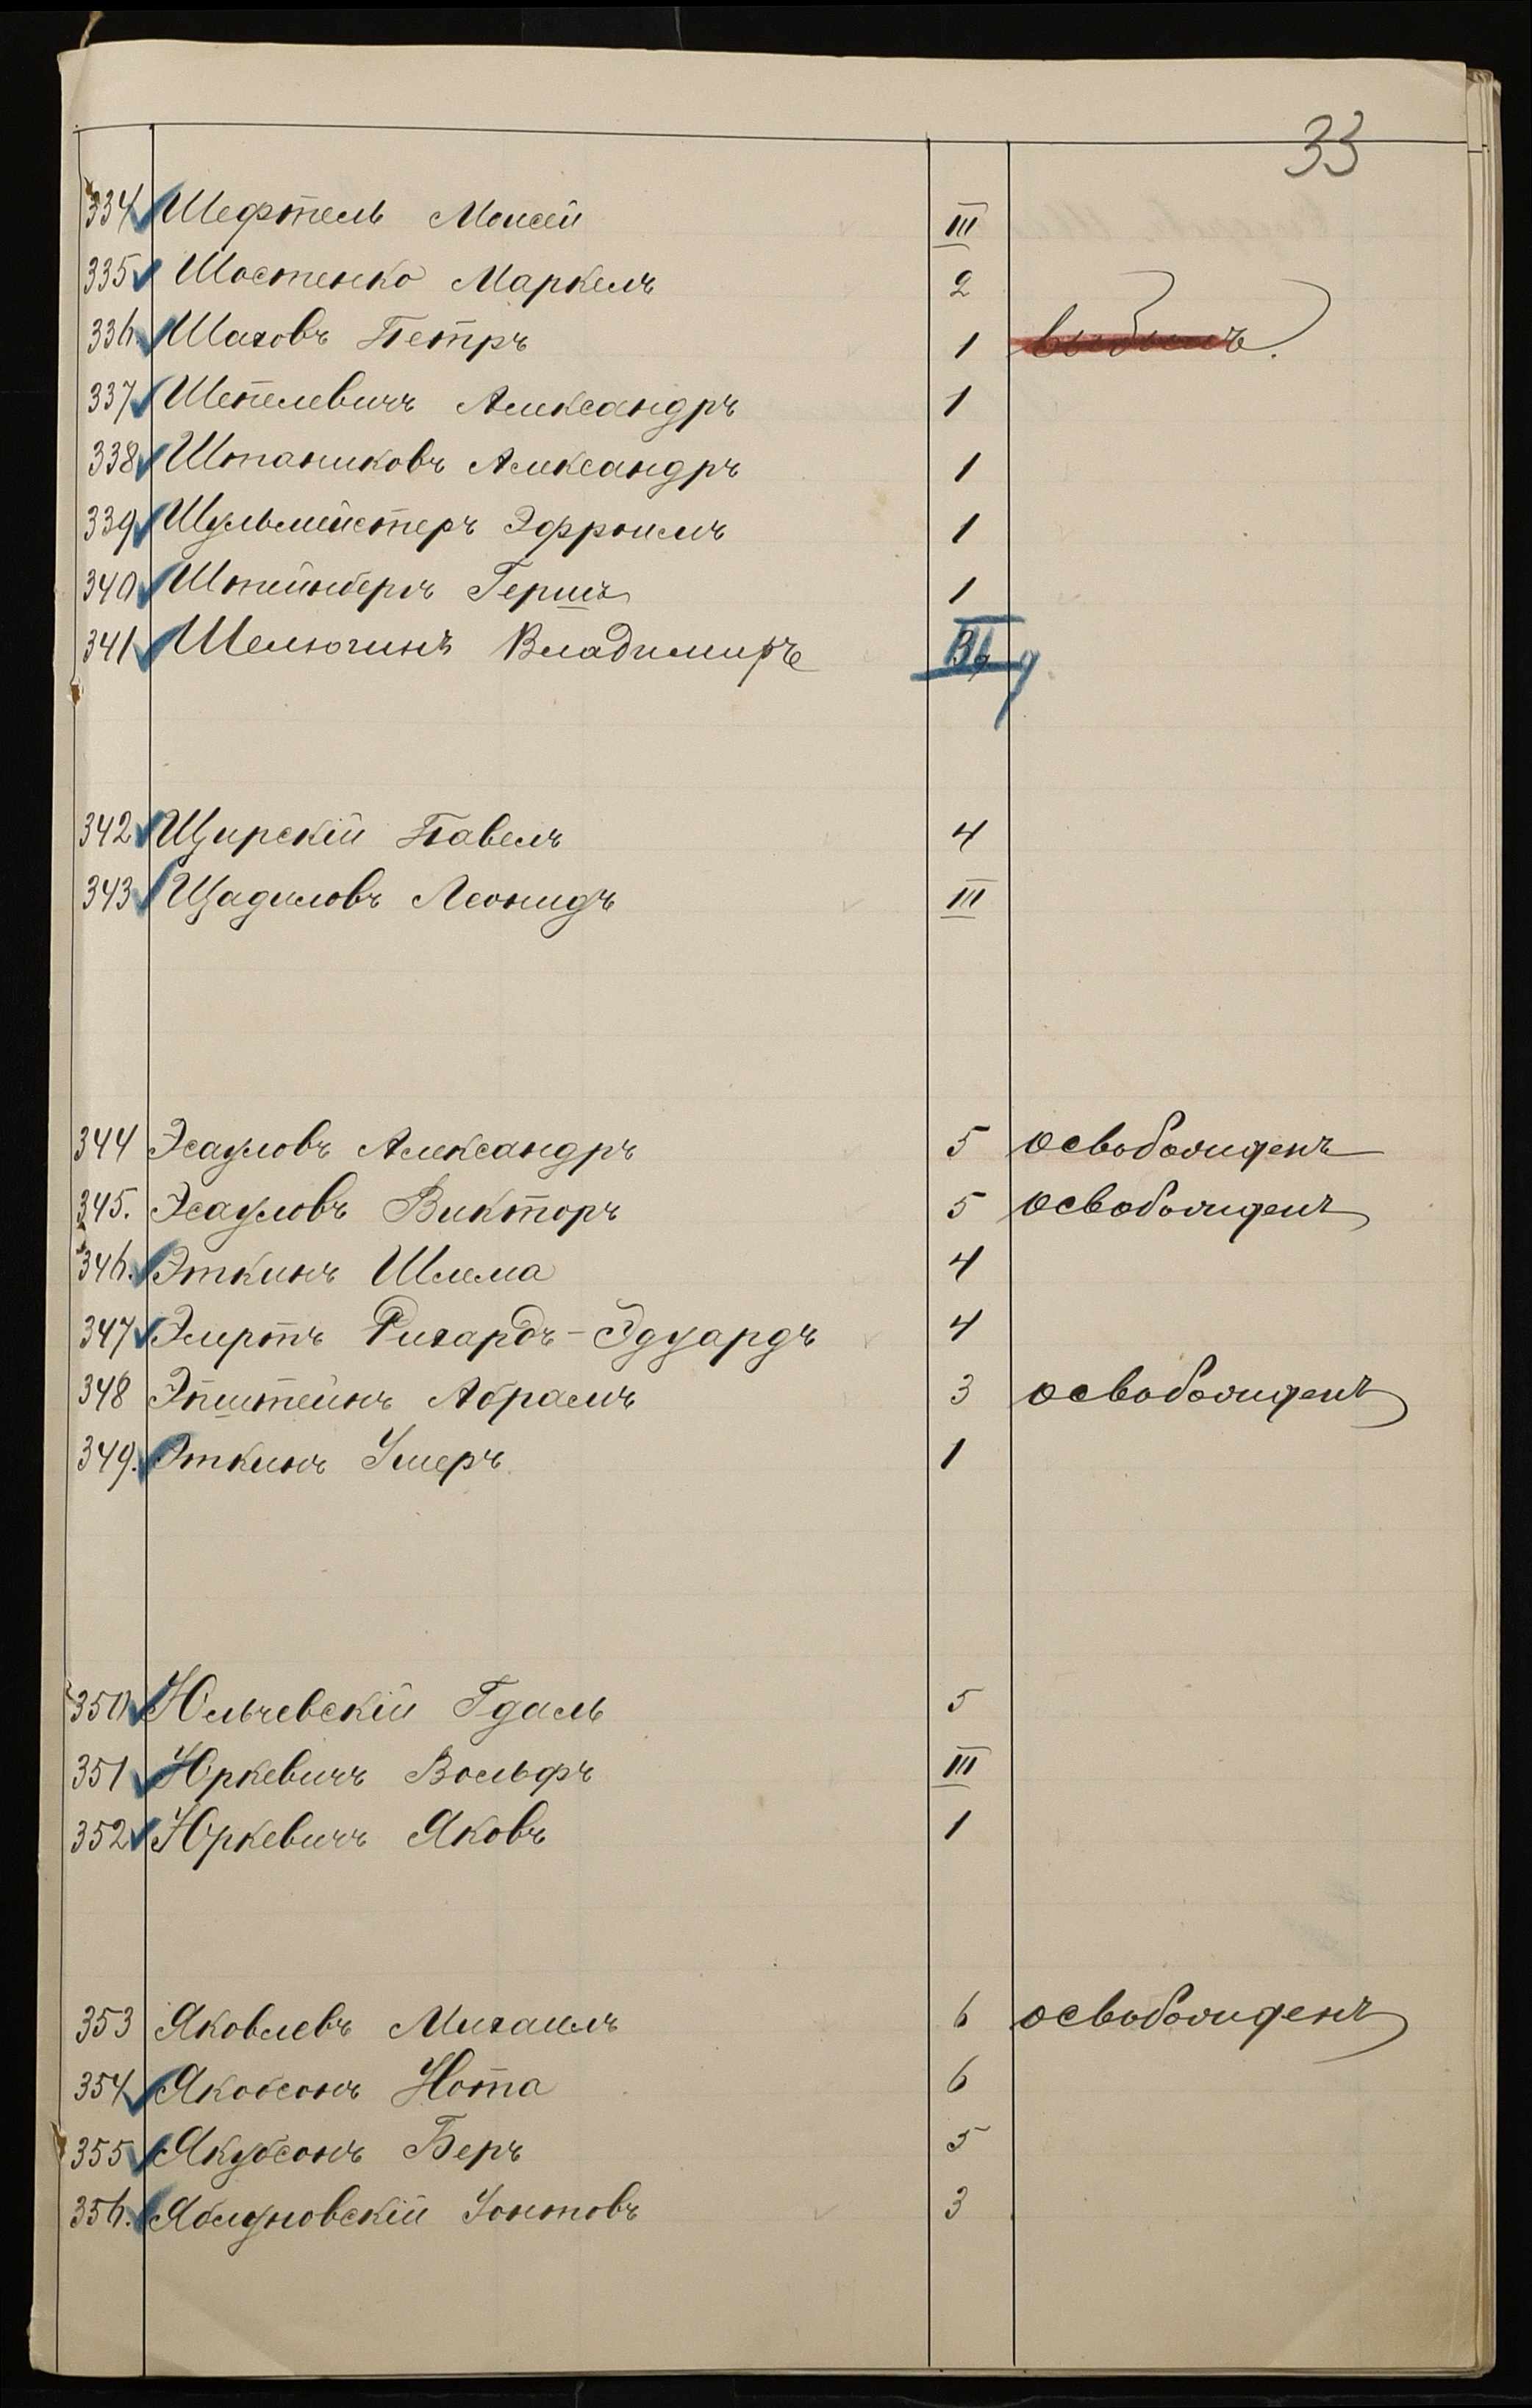 33
334 Шефтель Моисей III
335 Шостенко Маркелъ 2
336. Шаховъ Петръ 1 выбылъ.
337 Шепелевичъ Александръ 1
338 Шпаниковъ Александръ 1
339 Шульмейстеръ Эфроимъ 1
340 Штейнбергъ Гершъ 1
341 Шелюгинъ Владимиръ III
342 Щирскій Павелъ 4
343 Щадиловъ Леонидъ III
344 Эсауловъ Александръ 5 освобожденъ
345. Эсауловъ Викторъ 5 освобожденъ
346. Эткинъ Шлема 4
347 Элертъ Рихардъ-Эдуардъ 4
348 Эпштейнъ Абрамъ 3 освобожденъ
349. Эткинъ Ушеръ 1
350 Юльчевскій Гдаль 5
351 Юркевичъ Вольфъ III
352 Юркевичъ Яковъ 1
353 Яковлевъ Михаилъ 6 освобожденъ
354 Якобсонъ Нота 6
355 Якубсонъ Беръ 5
356. Яблуновскій Iонтовъ 3